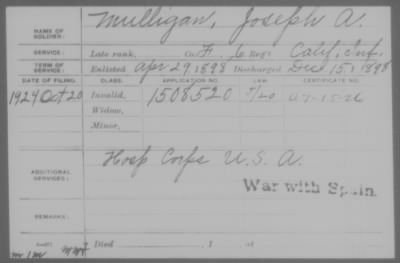 NAME OF SOLDIER: Mulligan, Joseph A.
SERVICE: Late rank, Co. F, 6 Reg't Calif. Inf.
TERM OF SERVICE: Enlisted Apr 29, 1898 Discharged Dec 15, 1898
DATE OF FILING. CLASS. APPLICATION NO. LAW. CERTIFICATE NO.
1924 Oct 20 Invalid, 1508520
Widow,
Minor,
ADDITIONAL SERVICES: Hosp Corps U.S.A.
War with Spain.
REMARKS:
Died , 1 , at